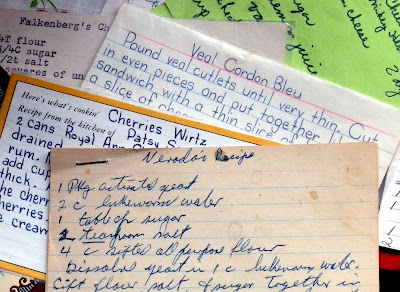 Falkenberg's Ch
4T flour
3/4C sugar
2/t salt
squares of un
Veal Cordon Bleu
Pound veal cutlets until very thin. Cut
in even pieces and put together
sandwich with a thin slice of
a slice of
juice
cheese
Here's what's cookin' Cherries Wirtz
Recipe from the kitchen of Patsy S
2 cans Royal Ann
drained
rum.
add cup
thick.
the cherr
cherries.
e cream
Nevada's Recipe
1 Pkg activated yeast
2 c lukewarm water
1 tablesp sugar
2 teaspoon salt
4 c sifted all purpose flour
Dissolve yeast in 1 c lukewarm water.
Sift flour, salt, & sugar together in